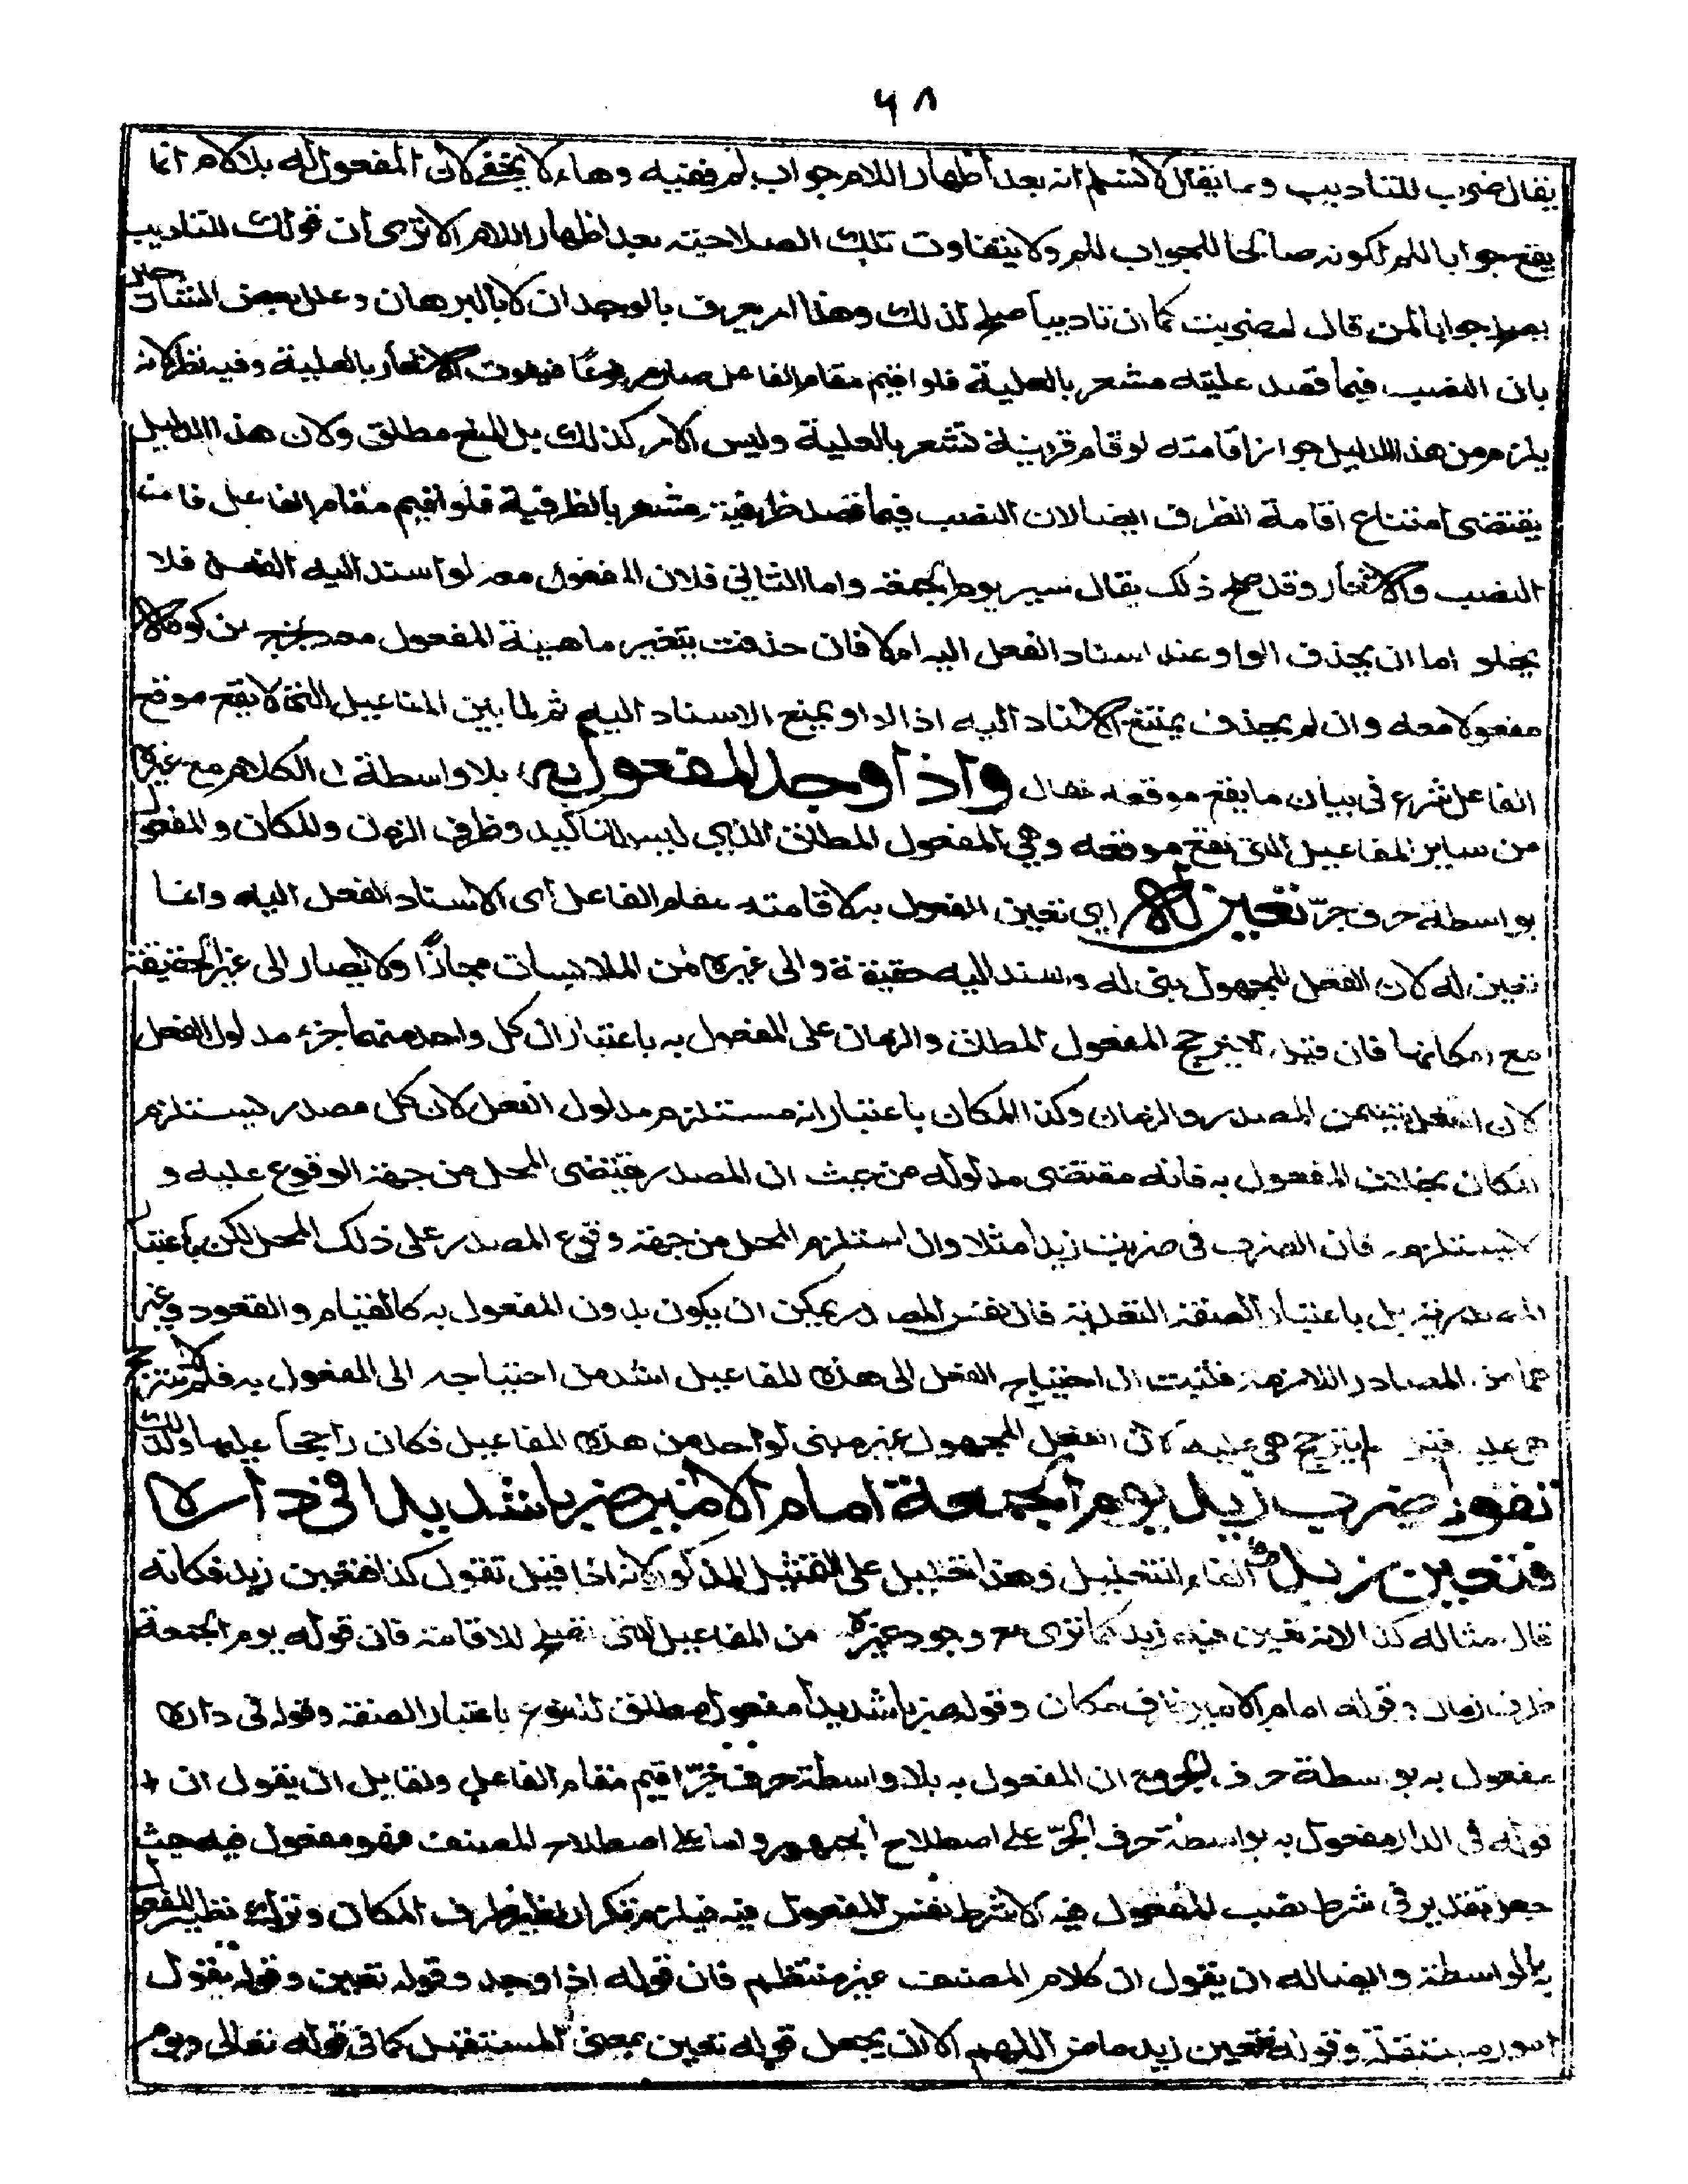 ٦٨
يقال ضرب للتاديب وما يقال لا نسلم انه بعد اظهار اللام جواب لم ففيه وهاء لا يخفى لان المفعول له بلا لام انما
يقع جوابا للم لكونه صالحا للجواب للم ولا يتفاوت تلك الصلاحية بعد اظهار اللام الا ترى ان قولك للتاديب
يصلح جوابا لمن قال لم ضربت كما ان تاديبا صلح لذلك وهذا امر يعرف بالوجدان لا بالبرهان وعلل بعض الشارحين
بان النصب فيما قصد عليته مشعر بالعلية فلو اقيم مقام الفاعل صار مرفوعًا فيفوت الاشعار بالعلية وفيه نظر لانه
يلزم من هذا الدليل جواز اقامته لو قام قرينة تشعر بالعلية وليس الامر كذلك بل المنع مطلق ولان هذا الدليل
يقتضى امتناع اقامة الظرف ايضا لان النصب فيما قصد ظرفيته مشعر بالظرفية فلو اقيم مقام الفاعل فات
النصب والاشعار وقد صح ذلك يقال سير يوم الجمعة واما الثانى فلان المفعول معه لو اسند اليه الفعل فلا
يخلو اما ان يحذف الواو عند اسناد الفعل اليه ام لا فان حذفت يتغير ماهية المفعول معه من كونه
مفعولا معه وان لم يحذف يمتنع الاسناد اليه اذ الواو يمنع الاسناد اليه ثم لما بين المفاعيل التى لا يقع موقع
الفاعل شرع فى بيان ما يقع موقعه فقال واذا وجد المفعول به بلا واسطة فى الكلام مع غيره
من ساير المفاعيل التى تقع موقعه وهى المفعول المطلق الذى ليس للتاكيد وظرف الزمان والمكان والمفعول
بواسطة حرف جرّ تعين له اى تعين المفعول به لاقامته مقام الفاعل اى لاسناد الفعل اليه وانما
تعين له لان الفعل المجهول بنى له واسند اليه حقيقة والى غيره من الملابسات مجازًا ولا يصار الى غير الحقيقة
مع امكانها فان قيل لا يترجح المفعول المطلق والزمان على المفعول به باعتبار ان كل واحد منهما جزء مدلول الفعل
لان الفعل يتضمن المصدر والزمان وكذا المكان باعتبار انه مستلزم مدلول الفعل لان كل مصدر يستلزم
المكان بخلاف المفعول به فانه مقتضى مدلوله من حيث ان المصدر يقتضى المحل من جهة الوقوع عليه و
لا يستلزمه فان الضرب فى ضربت زيدا مثلا وان استلزم المحل من جهة وقوع المصدر على ذلك المحل لكن لا باعتبار
المصدرية بل باعتبار الصفة المتعدية فان نفس المصدر يمكن ان يكون بدون المفعول به كالقيام والقعود وغير
هما من المصادر اللازمة فثبت ان احتياج الفعل الى هذه المفاعيل اشد من احتياجه الى المفعول به فلم لا يترجح
هى عليه قيل لم يترجح هى عليه لان الفعل المجهول غير مبنى لواحد من هذه المفاعيل فكان راجحا عليها ولذلك
تقول ضرب زيد يوم الجمعة امام الامير ضربا شديدا فى داره
فتعين زيد الفاء للتعليل وهذا تعليل على التمثيل المذكور لانه لما قيل تقول كذا فتعين زيد فكانه
قال مثاله كذا لانه تعين فيه زيد كما ترى مع وجود غيره من المفاعيل التى تصلح للاقامة فان قوله يوم الجمعة
ظرف زمان وقوله امام الامير ظرف مكان وقوله ضربا شديدا مفعول مطلق للنوع باعتبار الصفة وقوله فى داره
مفعول به بواسطة حرف الجر مع ان المفعول به بلا واسطة حرف جرّ اقيم مقام الفاعل ولقايل ان يقول ان
قوله فى الدار مفعول به بواسطة حرف الجرّ على اصطلاح الجمهور واما على اصطلاح المصنف فهو مفعول فيه حيث
جعل تقدير فى شرط نصب المفعول فيه لا شرط نفس المفعول فيه فيلزم تكرار نظير ظرف المكان وترك نظير المفعول
به بالواسطة وايضا له ان يقول ان كلام المصنف غير منتظم فان قوله اذا وجد وقوله تعين وقوله تقول
امور مستقبلة وقوله فتعين زيد ماض اللهم الا ان يجعل قوله تعين بمعنى المستقبل كما فى قوله تعالى ويوم